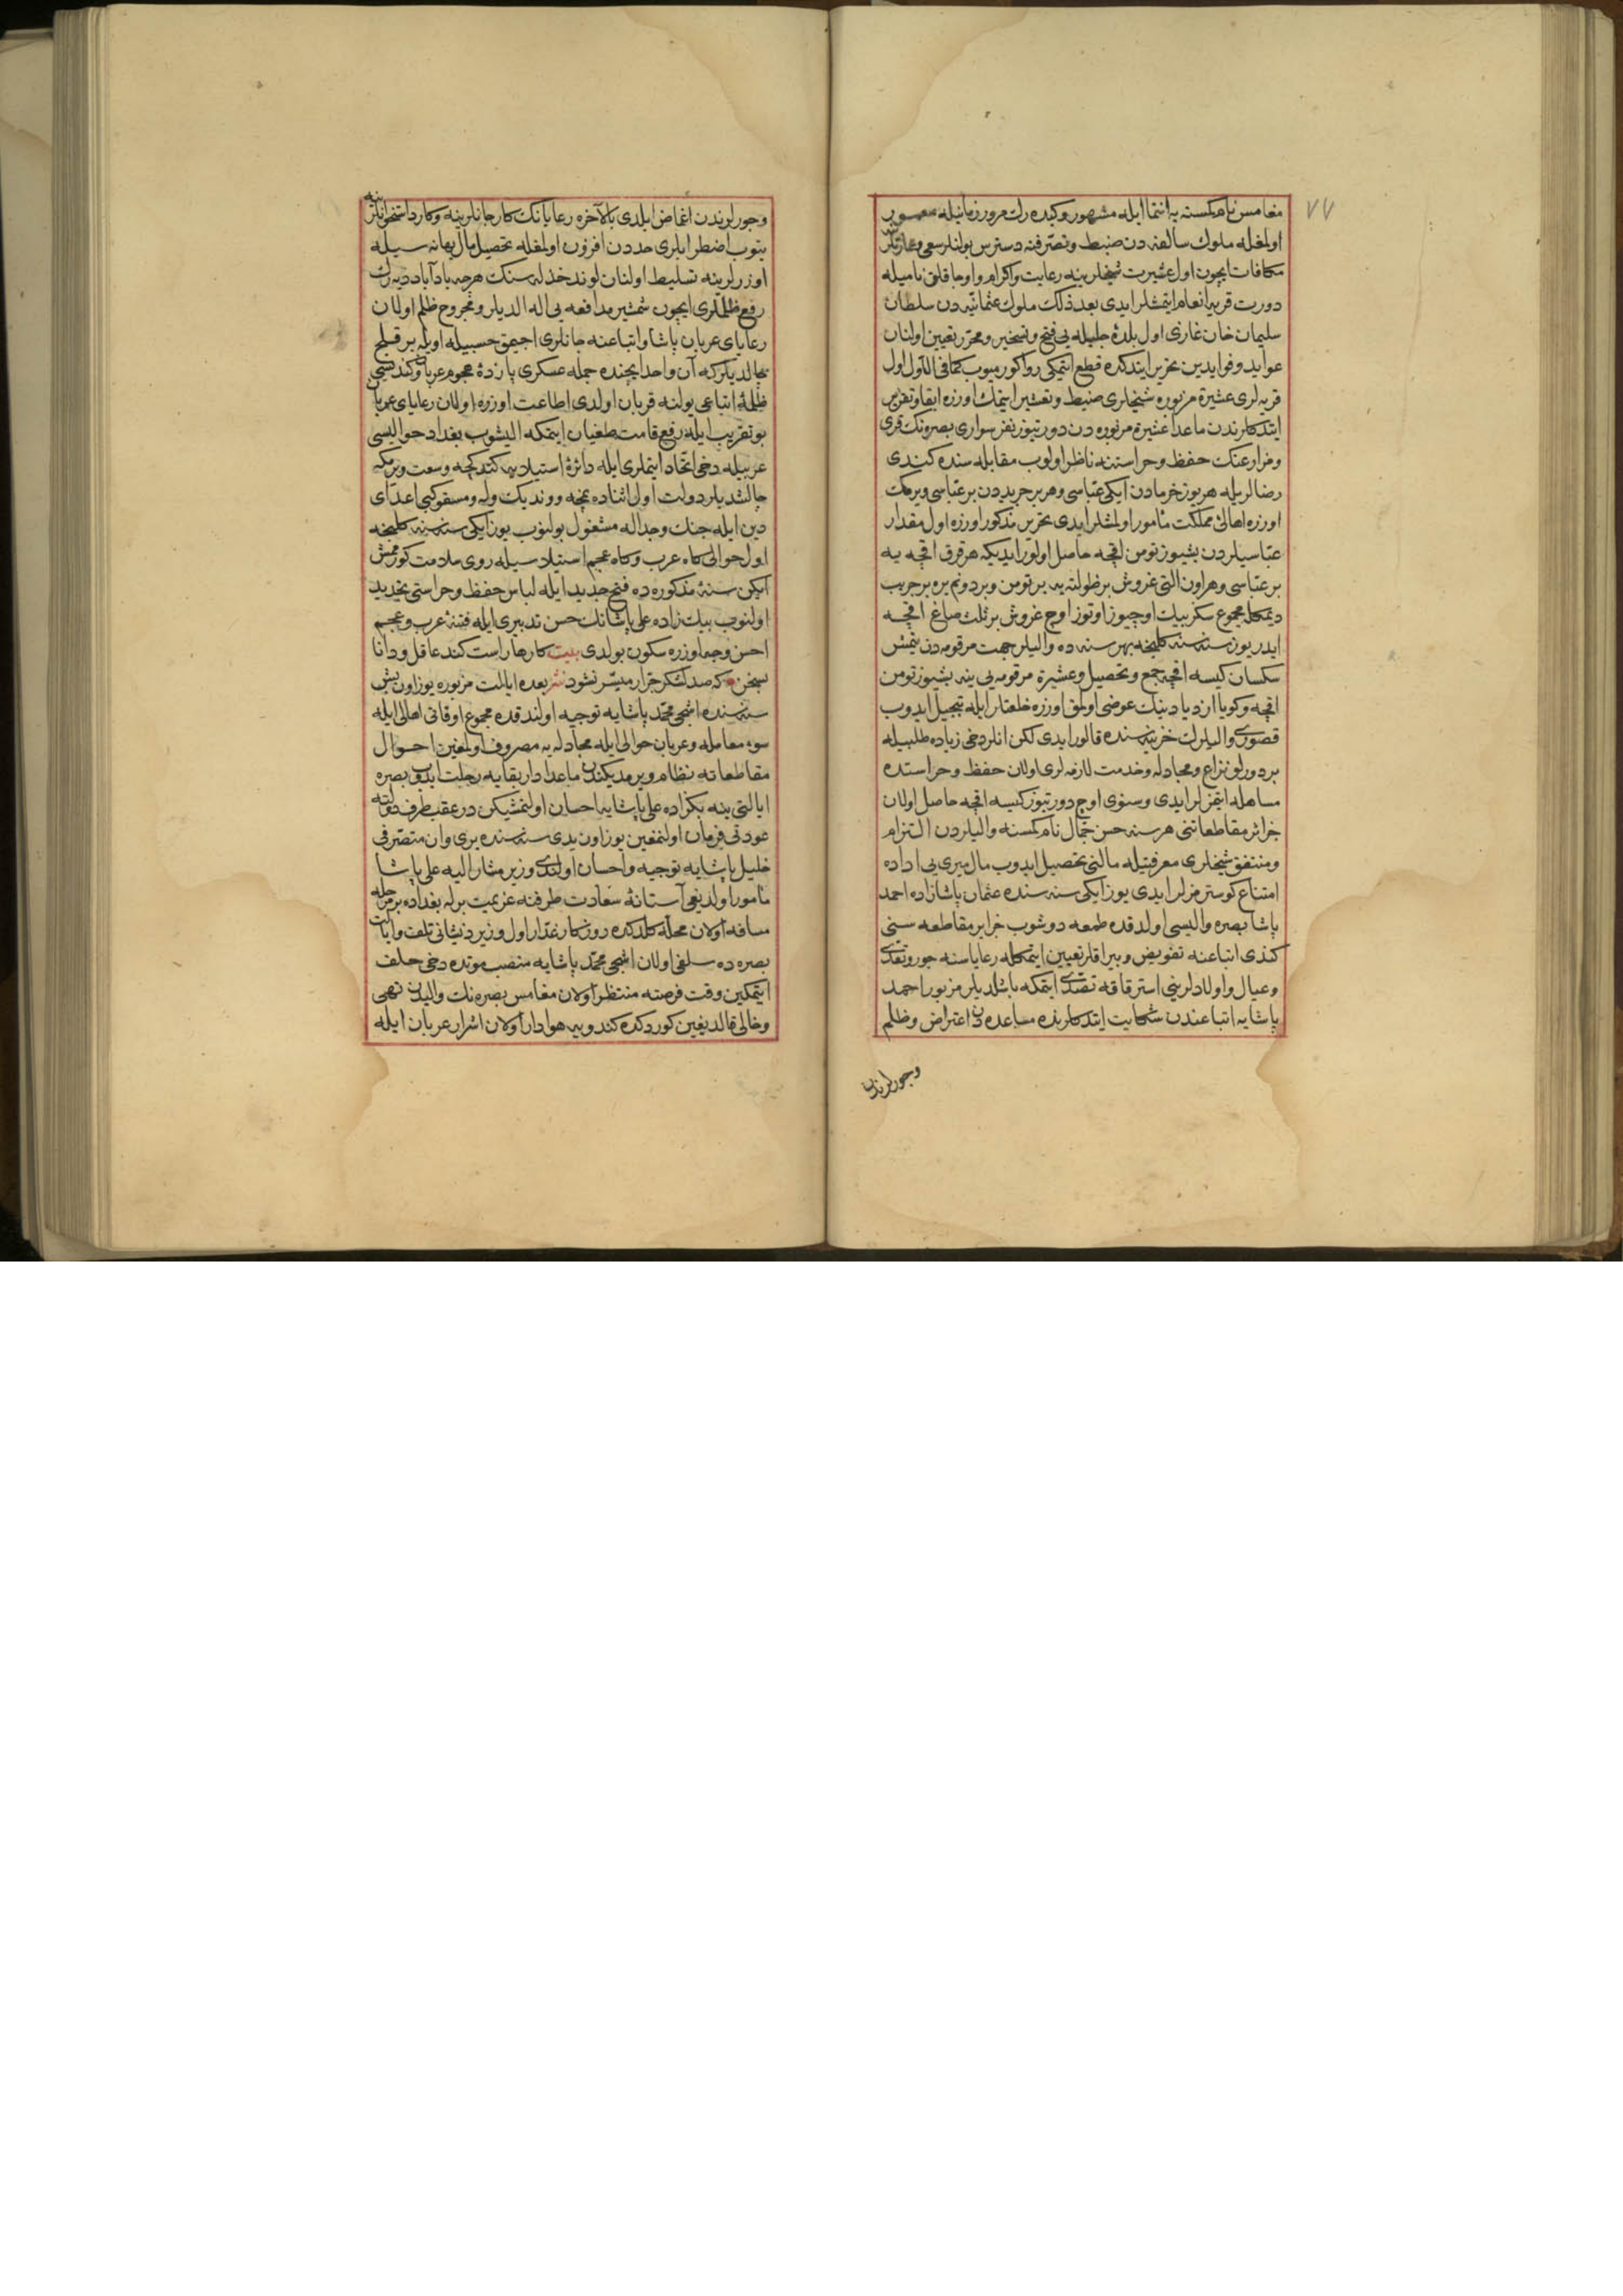 ٧٧
مغامس نام كمسنه يه انتما ايله مشهور وكيده رك مرور زمانيله
اولمغله ملوك سالفه دن ضبط وتصرفنه دسترس بولنلر سعى
مكافات ايچون اول عشيرت شيخلرينه رعايت واكرام واوجاقلق ناميله
دورت قريه انعام ايتمشلر ايدى بعد ذلك ملوك عثمانيه دن سلطان
سليمان خان غازى اول بلدۀ جليله يى فتح وتسخير ومحرر تعيين اولنان
عوايد وفوايدين تحرير ايتدكده قطع ايتمكى روا كورميوب كما فى الاول اول
قريه لرى عشيرۀ مزبوره شيخلرى ضبط وتعشير ايتمك اوزره ابقا وتقرير
ايتدكلرندن ماعدا عشيرۀ مزبوره دن دورتيوز نفر سوارى بصره نك قرى
ومزارعنك حفظ وحراستنه ناظر اولوب مقابله سنده كندى
رضالريله هر يوز خرمادن ايكى عباسى وهر بر جريبدن بر عباسى ويرمك
اوزره اهالئ مملكت مأمور اولمشلر ايدى تحرير مذكور اوزره اول مقدار
عباسيلردن بشيوز تومن اقچه حاصل اولور ايديكه هر قرق اقچه يه
بر عباسى وهر اون التى غروش بر ظولته يه بر تومن وبر دونم يره بر جريب
ديمكله مجموع سكز بيك اوچيوز اوتوز اوچ غروش بر ثلث صاغ اقچه
ايدر يوز سنه سنه كلنجه بهر سنه ده واليلر جهت مرقومه دن يتمش
سكسان كيسه اقچه جمع وتحصيل وعشيرۀ مرقومه يى ينه بشيوز تومن
اقچه وكويا ازديادينك عوضى اولمق اوزره خلعتلر ايله تبجيل ايدوب
قصورى واليلرك خزينه سنده قالور ايدى لكن انلر دخى زياده طلبيله
بر دورلو نزاع ومجادله وخدمت لازمه لرى اولان حفظ وحراستده
مساهله ايتمزلر ايدى وسنوى اوچ دورتيوز كيسه اقچه حاصل اولان
جزائر مقاطعاتنى هر سنه حسن جمال نام كمسنه واليلردن التزام
ومنتفق شيخلرى معرفتيله مالنى تحصيل ايدوب مال ميرى يى اداده
امتناع كوسترمزلر ايدى يوز ايكى سنه سنده عثمان پاشازاده احمد
پاشا بصره واليسى اولدقده طمعه دوشوب جزاير مقاطعه سنى
كندى اتباعنه تفويض وبيراقلر تعيين ايتمكله رعاياسنه جور وتعدى
وعيال واولادلرينى استرقاقه تصدى ايتمكه باشلديلر مزبور احمد
پاشايه اتباعندن شكايت ايتدكلرنده مساعده دن اعتراض وظلم
وجورلرندن
وجورلرندن اغماض ايلدى بالآخره رعايانك كار جانلرينه وكارد استخوانلرينه
يتوب اضطرابلرى حددن افزون اولمغله تحصيل مال بهانه سيله
اوزرلرينه تسليط اولنان لوند خذله سنك هرچه باد آباد ديه رك
رفع ظلملرى ايچون شمشير مدافعه يى اله الديلر ومجروح ظلم اولان
رعاياى عربان پاشا واتباعنه جانلرى اجيمق حسبيله اويله بر قليج
چالديلر كه آن واحد ايچنده جمله عسكرى پازدۀ هجوم عربان وكندسى
ظلمۀ اتباعى يولنه قربان اولدى اطاعت اوزره اولان رعاياى عربان
بو تقريب ايله رفع قامت طغيان ايتمكه اليشوب بغداد حواليسى
عربيله دخى اتحاد ايتملرى ايله دائرۀ استيلايه كتدكچه وسعت ويرمكه
چالشديلر دولت اول اثناده نمچه ووندیك وله ومسقو كبى اعداى
دين ايله جنك وجداله مشغول بولنوب يوز ايكى سنه سنه كلنجه
اول حوالى كاه عرب وكاه عجم استيلاسيله روى ملامت كورمش
ايكن سنۀ مذكوره ده فتح جديد ايله لباس حفظ وحراستى تجديد
اولنوب بيك زاده على پاشانك حسن تدبيرى ايله فتنۀ عرب وعجم
احسن وجه اوزره سكون بولدى بيت كارها راست كند عاقل ودانا
بسخن كه صد لشكر جرار ميسر نشود نثر بعده ايالت مزبوره يوز اون بش
سنه سنده اشجى محمد پاشايه توجيه اولندقده مجموع اوقاتى اهالى ايله
سوء معامله وعربان حوالى ايله مجادله يه مصروف اولمغين احوال
مقاطعاته نظام ويرمديكندن ماعدا دار بقايه رحلت ايدوب بصره
ايالتى ينه بكزاده على پاشايه احسان اولنمشيكن در عقب طرف دولته
عودتى فرمان اولنمغين يوز اون يدى سنه سنده برى وان متصرفى
خليل پاشايه توجيه واحسان اولندى وزير مشار اليه على پاشا
مأمور اولديغى آستانۀ سعادت طرفنه عزيمت برله بغداده بر مرحله
مسافه اولان محله كلدكده روزكار غدار اول وزير ذيشانى تلف وايالت
بصره ده سلفى اولان اشجى محمد پاشايه منصب موتده دخى خلف
ايتمكين وقت فرصته منتظر اولان مغامس بصره نك واليدن تهى
وخالى قالديغين كوردكده كندويه هوادار اولان اشرار عربان ايله